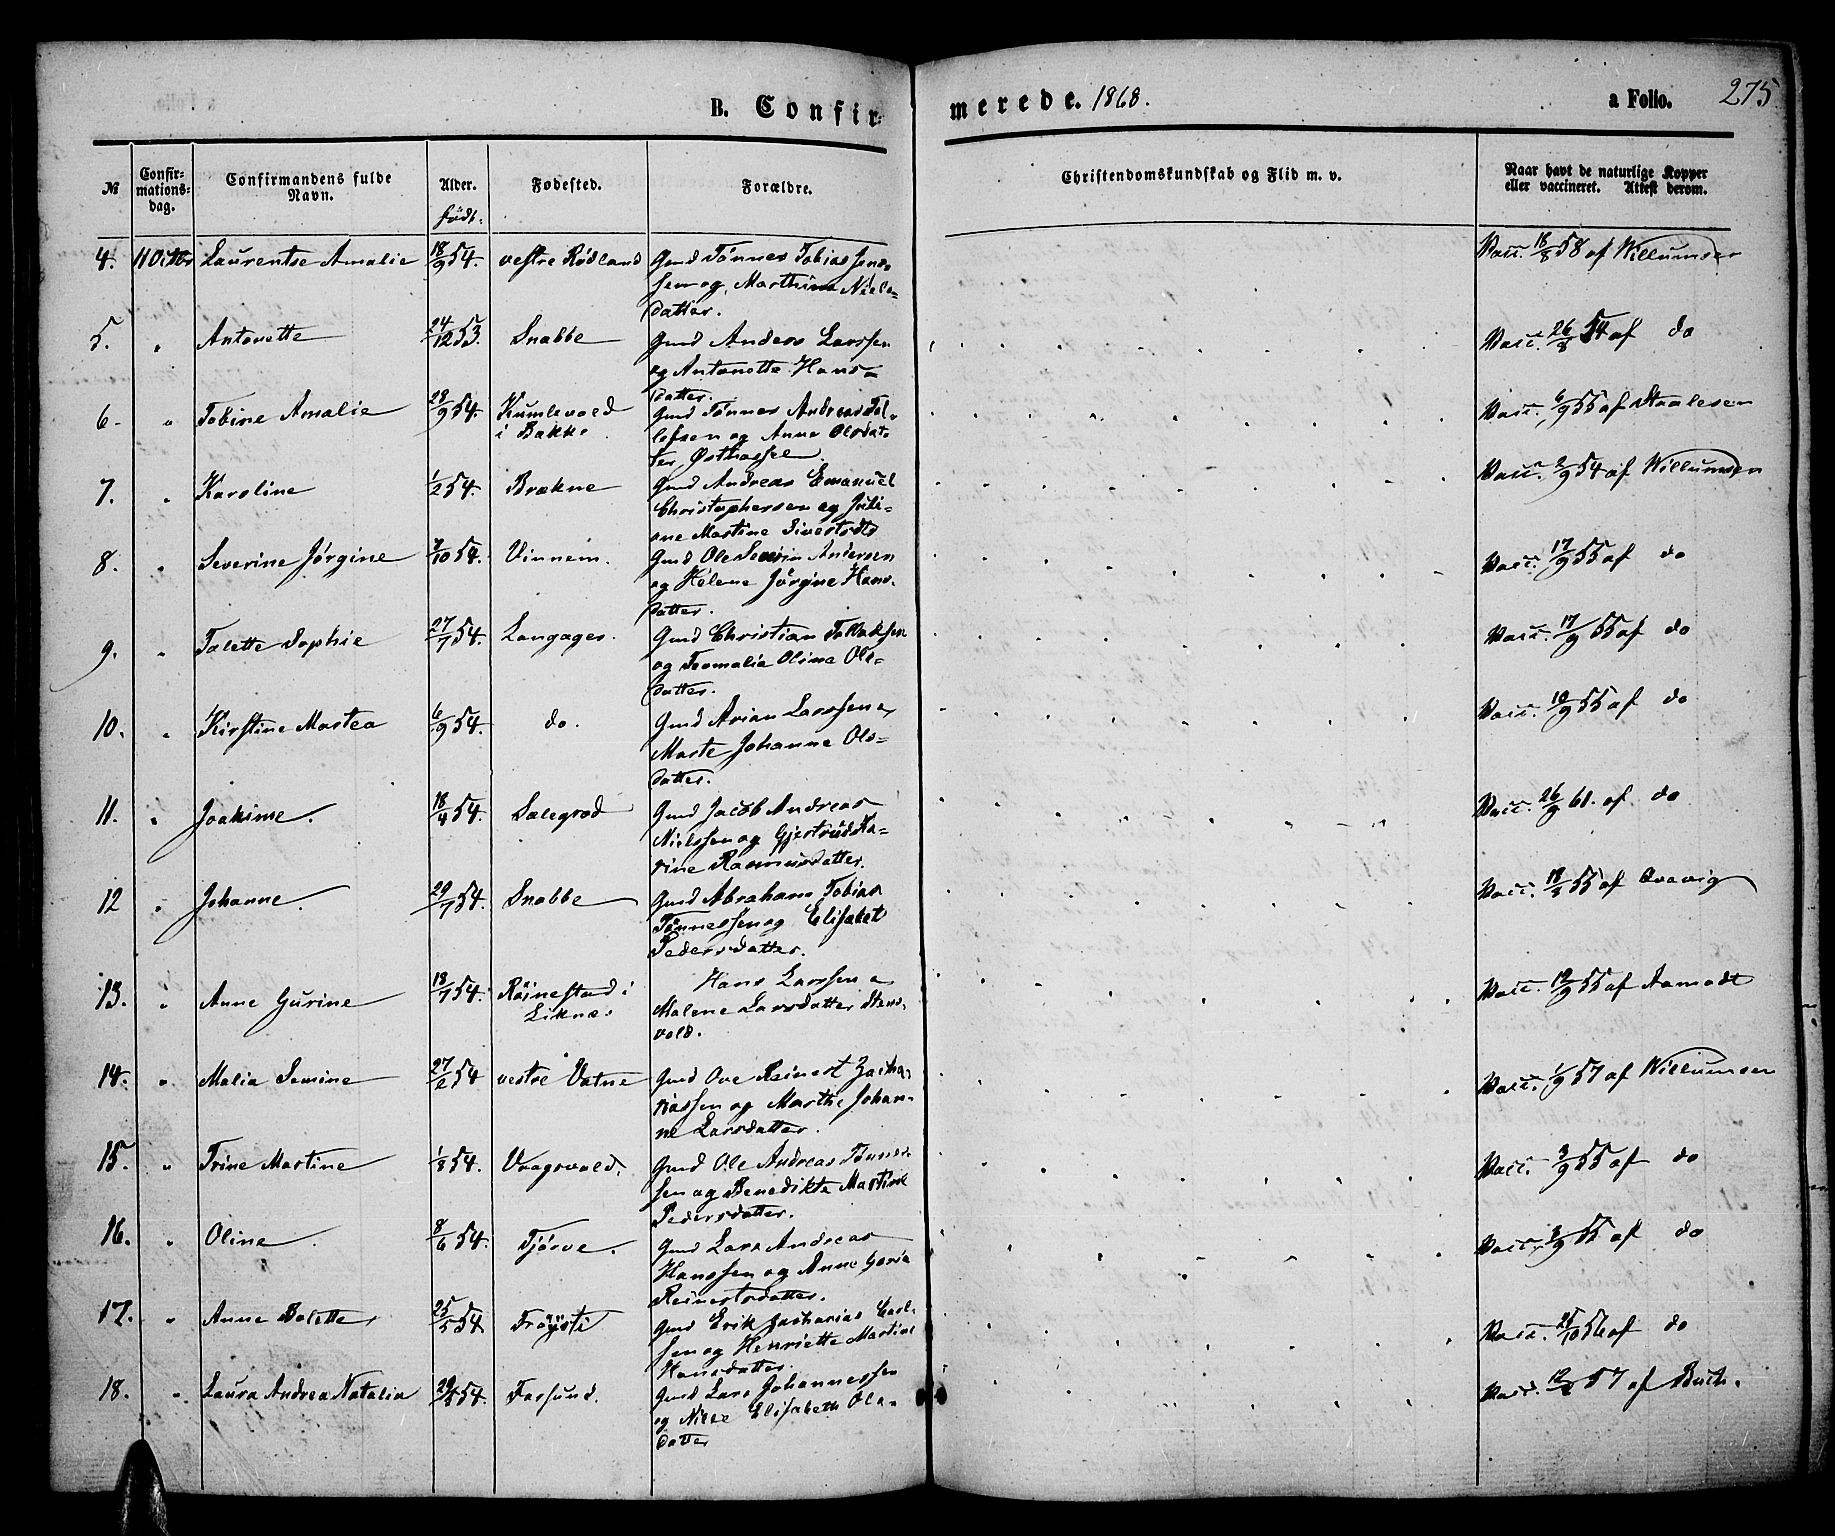 B. Confirmerede. 1868. a Folio. 275
№ Confirmationsdag. Confirmandens fulde Navn. Alder. født. Fødested. Forældre. Christendomskundskab og Flid m. v. Naar havt de naturlige Kopper eller vaccineret. Attest derom.
4. 11 Octbr Laurentse Amalie 18/9 54. vestre Rødland Gmd Tønnes Tobias
sen og Marthine Niels- Vacc. 18/8 58 af Willumsen
datter.
5. " Antonette 24/12 53. Snabbe Gmd Anders Larssen Vacc. 26/8 54 af do
og Antonette Hans-
datter.
6. " Tobine Amalie 28/9 54. Kumlevold Gmd Tønnes Andreas Tol- Vacc. 6/9 55 af Staalesen
i Bakke lefsen og Anne Olsdat-
ter Østhassel
7. " Karoline 1/2 54. Brækne Gmd Andreas Emanuel Vacc. 2/9 54 af Willumsen
Christophersen og Juli-
ane Martine Sivertsdtr
8. " Severine Jørgine 7/10 54. Vinnem. Gmd Ole Severin Andersen Vacc. 17/9 55 af do
og Helene Jørgine Hans-
datter.
9. " Talette Sophie 27/7 54. Langager. Gmd Christian Tollaksen Vacc. 17/9 55 af do
og Teomalia Oline Ols-
datter.
10. " Kirstine Martea 6/9 54. do. Gmd Arian Larssen a Vacc. 10/9 55 af do
Marte Johanne Ols-
datter.
11. " Joakime. 18/4 54. Salegrod Gmd Jacob Andreas Vacc. 26/9 61. af do
Nielssen og Gjertrud Ka-
rine Rasmusdatter.
12 " Johanne. 29/7 54. Snabbe Gmd Abraham Tobias Vacc. 18/8 55 af Qvavig
Tønnessen og Elisabet
Pedersdatter.
13. " Anne Gurine 18/7 54. Røinestad i Hans Larssen a Vacc. 12/9 55 af Aamodt
Liknes Malene Larsdatter Stens-
vold.
14. " Malia Semine 27/2 54 vestre Vatne Gmd Ove Reinert Zacha- Vacc. 1/9 57 af Willumsen
riassen og Marthe Johan-
ne Larsdatter.
15. " Trine Martine 1/8 54. Vragsvold. Gmd Ole Andreas Tønnes- Vacc. 3/9 55 af do
sen og Benedikte Martine
Pedersdatter.
16. " Oline. 8/6 54. Tjørve. Gmd Lars Andreas Vacc. 3/9 55 af do
Hanssen og Anne Goria
Reinertsdatter.
17. " Anne Bolette 25/5 54 Frøysti Gmd Erik Zacharias Carl- Vacc. 25/10 56 af do
sen og Henriette Martine
Hansdatter.
18. " Laura Andrea Natalia 29/5 54. Farsund. Gmd Lars Johannessen Vacc. 12/8 57 af Buch.
og Nille Elisabeth Ols-
datter